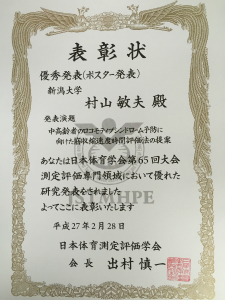 表彰状
優秀発表(ポスター発表)
新潟大学
村山 敏夫 殿
発表演題
中高齢者のロコモティブシンドローム予防に
向けた筋収縮速度時間評価法の提案
あなたは日本体育学会第65回大会
測定評価専門領域において優れた
研究発表をされました
よってここに表彰いたします
平成27年2月28日
日本体育測定評価学会
会長 出村 慎一